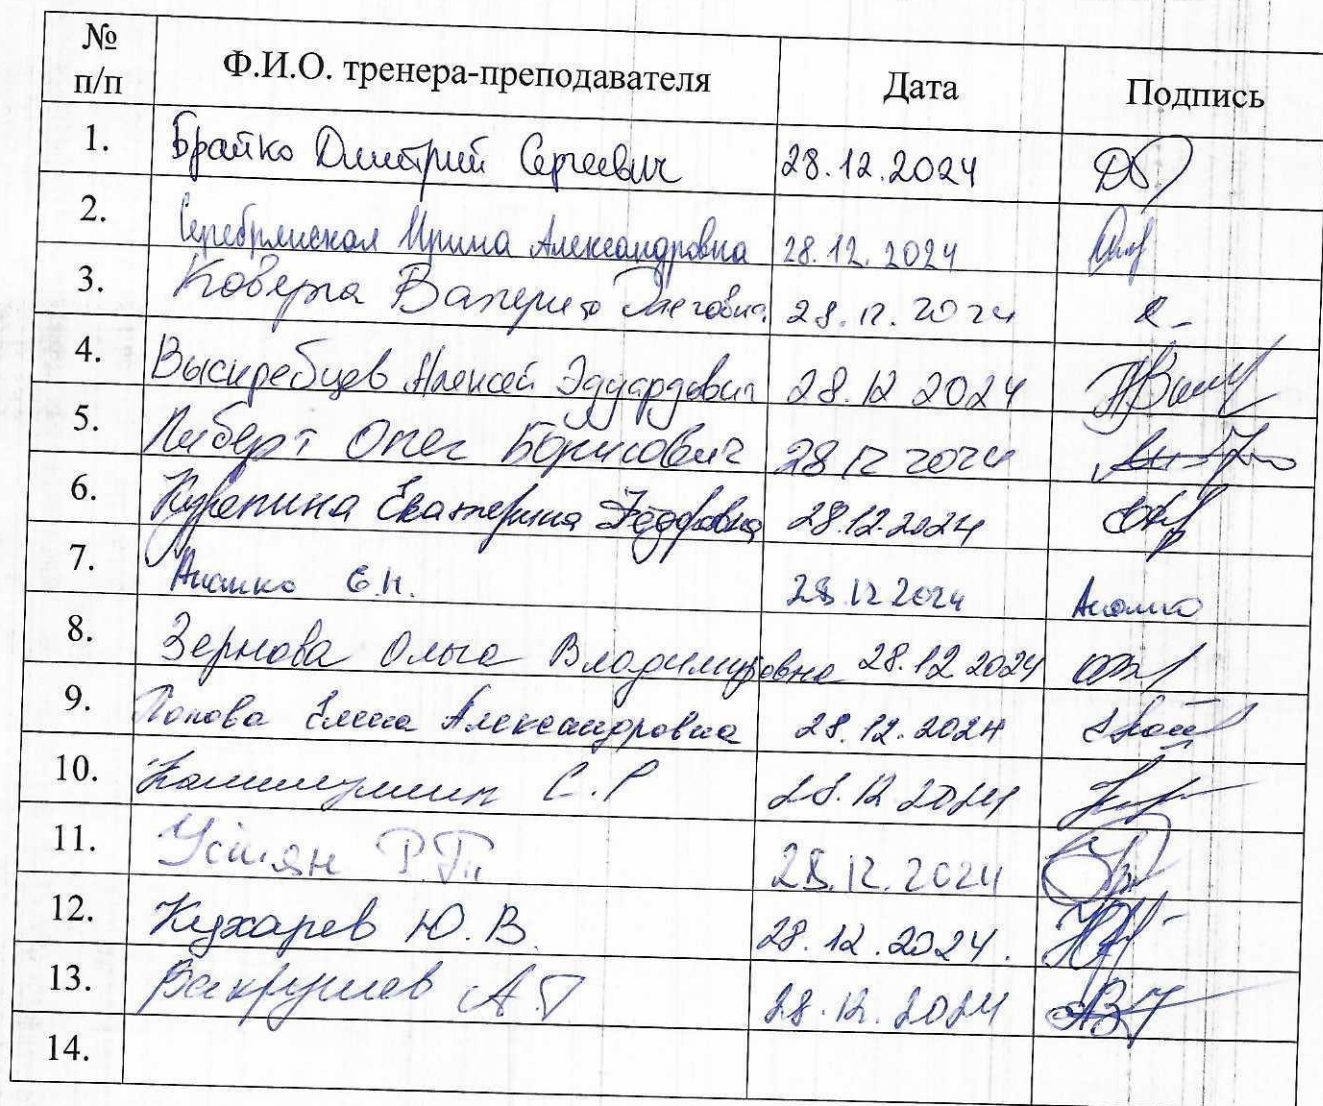 № п/п Ф.И.О. тренера-преподавателя Дата Подпись
1. Брайко Дмитрий Сергеевич 28.12.2024
2. Серебрянская Ирина Александровна 28.12.2024
3. Коверга Валерия Олеговна 28.12.2024
4. Выскребцев Алексей Эдуардович 28.12 2024
5. Либерт Олег Борисович 28 12 2024
6. Курепина Екатерина Фёдоровна 28.12.2024
7. Е.Н. 28.12 2024
8. Зернова Ольга Владимировна 28.12 2024
9. Попова Елена Александровна 28.12.2024
10. С.Р 28.12 2024
11. Устян Р.Г. 28.12.2024
12. Кухарев Ю.В. 28.12.2024.
13. Вахрушев А.Г 28.12.2024
14.